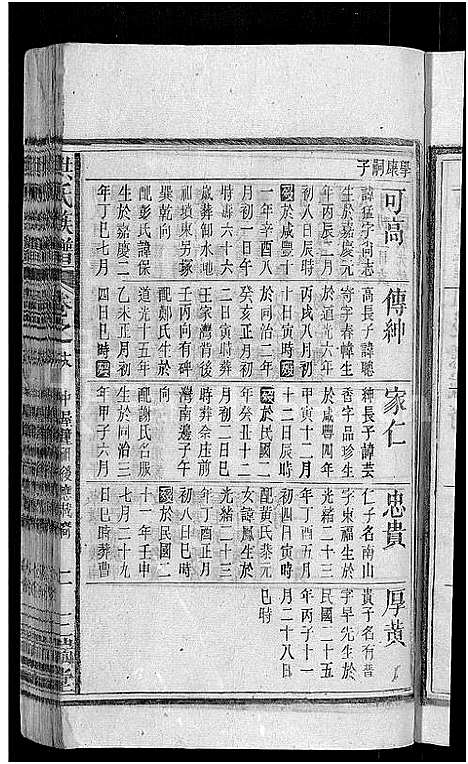 學康嗣子
可高
諱猛字尚志
生於嘉慶元
年丙辰二月
初八日辰時
歿於咸豐十
一年辛酉八
月初一日申
時壽六十六
歲葬卸水地
祖墳東另塚
巽乾向
配彭氏諱保
生於嘉慶二
年丁巳七月
傳紳
高長子諱聰
寄字春幃生
於道光六年
丙戌八月初
十日寅時歿
於同治二年
癸亥正月初
十日寅時葬
王家灣背後
壬丙向有碑
配鄭氏生於
道光十五年
乙未正月初
四日巳時歿
家仁
紳長子諱芸
香字品珍生
於咸豐四年
甲寅十二月
十二日辰時
歿於民國二
年癸丑十二
月初三日巳
時葬余庄前
灣南邊子午
向
配謝氏名版
生於同治三
年甲子六月
忠貴
仁子名南山
字東福生於
光緒二十三
年丁酉五月
初四日寅時
配黄氏恭元
女諱鳳生於
光緒二十三
年丁酉正月
初八日巳時
歿於民國二
十一年壬申
七月二十九
日巳時葬曹
厚黃
貴子名有普
字早先生於
民國二十五
年丙子十一
月二十八日
巳時
洪氏族譜
卷之